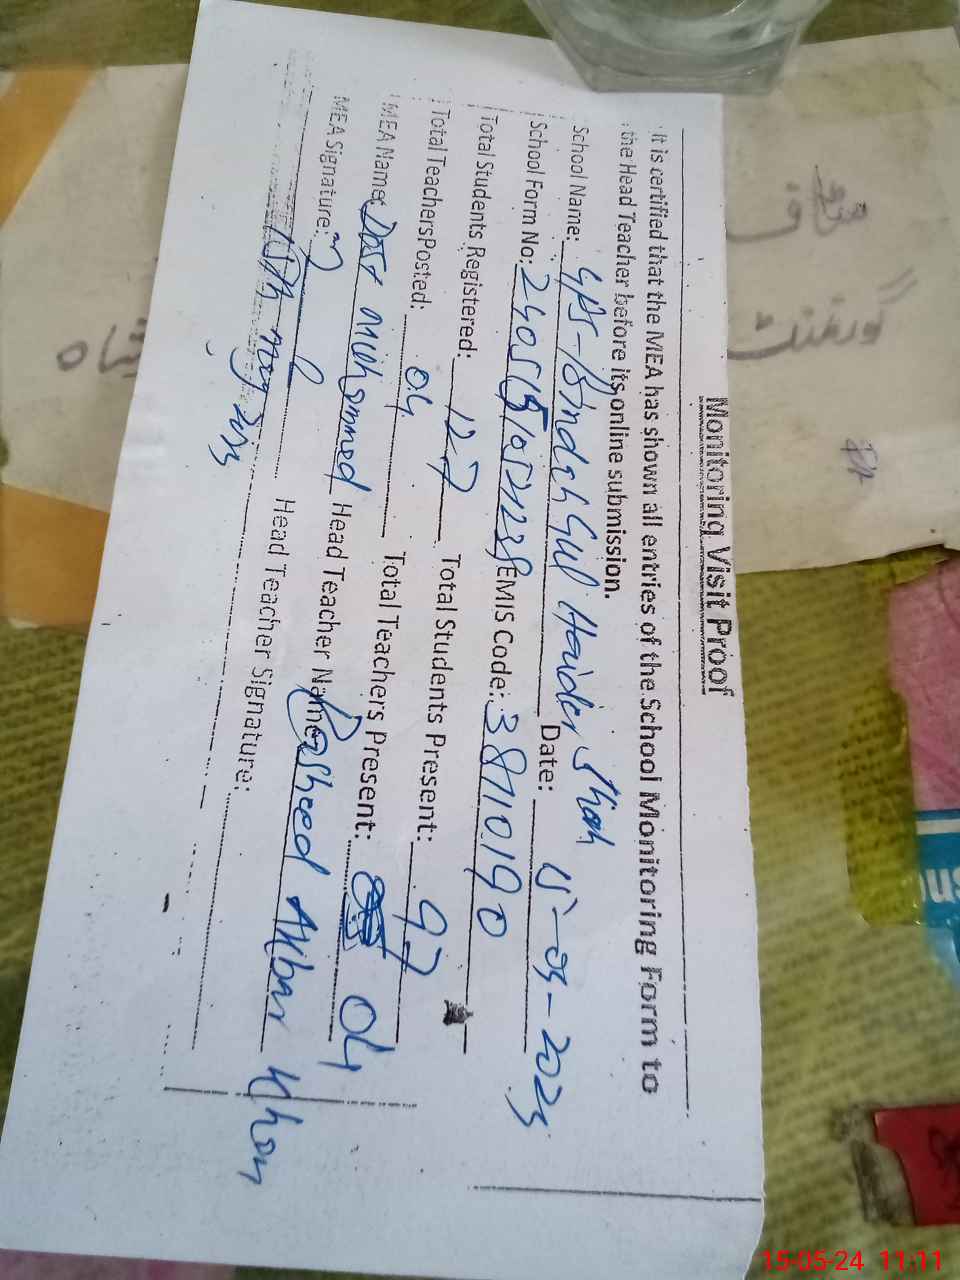 Monitoring Visit Proof
It is certified that the MEA has shown all entries of the School Monitoring Form to
the Head Teacher before its online submission.
School Name: GPS-Bindah Gul Haider Shah Date: 15-05-2024
School Form No: EMIS Code: 38710190
Total Students Registered: 127 Total Students Present: 97
Total Teachers Posted: 04 Total Teachers Present: 04
MEA Name: Dost Muhammed Head Teacher Name: Rasheed Akbar Khan
MEA Signature: Head Teacher Signature:
15th may
گورنمنٹ
15-05-24 11:11